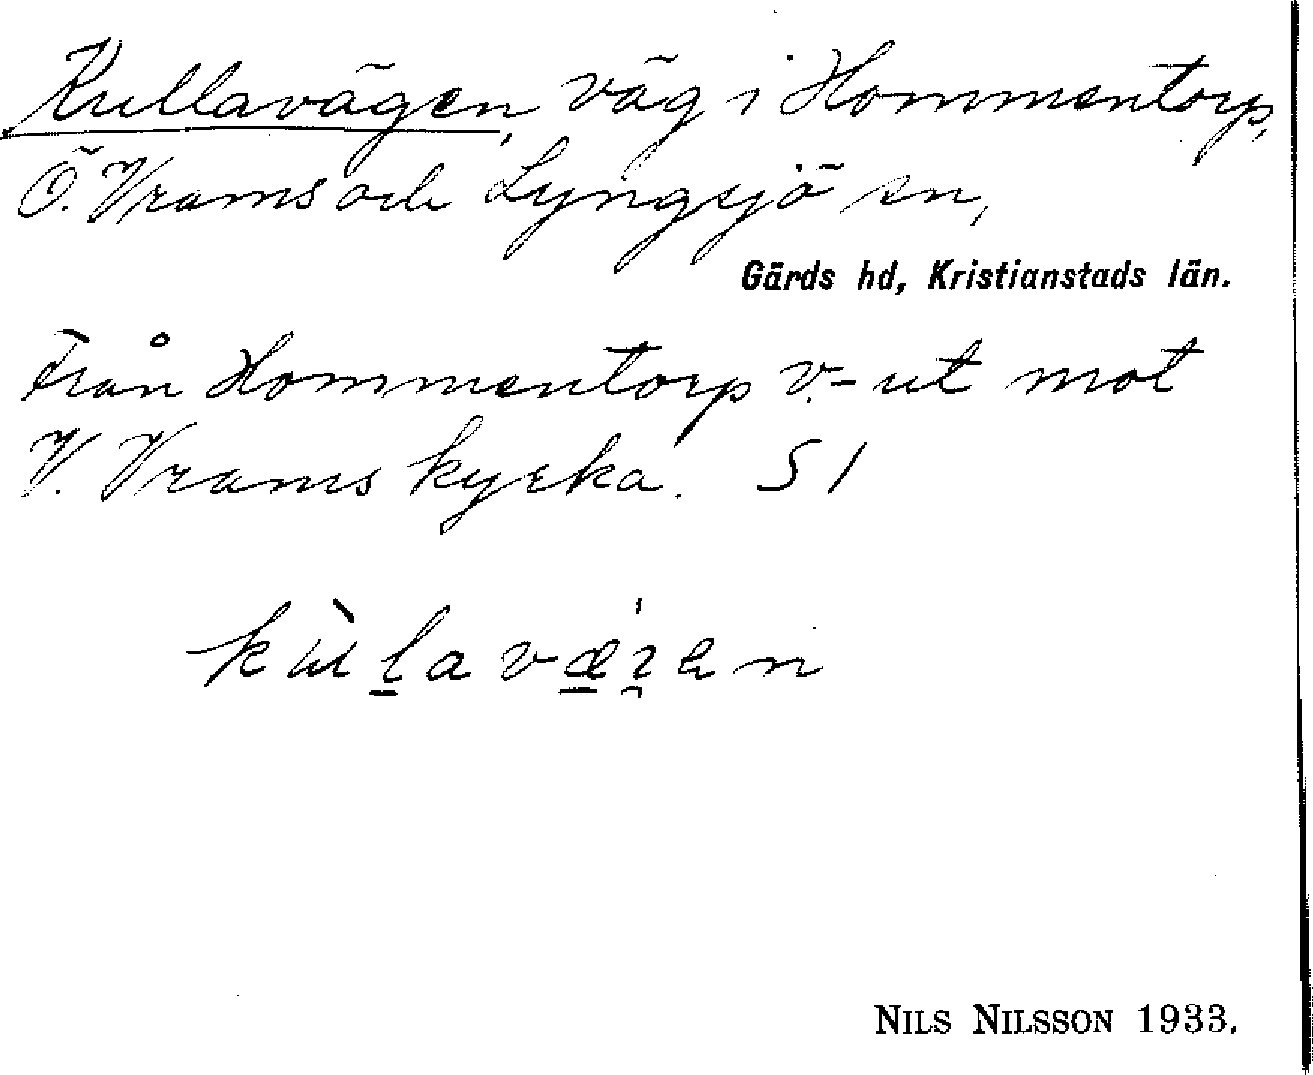 Kullavägen, väg i Hommentorp,
Ö. Vrams och Lyngsjö sn,
Gärds hd, Kristianstads län.
Från Hommentorp v.-ut mot
V. Vrams kyrka. S 1
NILS NILSSON 1933.